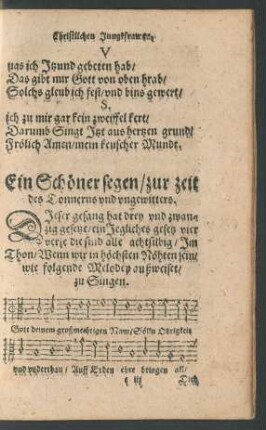 Christlichen Jungkfrawen.
V
uas ich Jtzund gebeten hab/
Das gibt mir Gott von oben hrab/
Solchs gleub ich fest/ vnd bins gewert/
S.
ich zu mir gar kein zweiffel kert/
Darumb Singt Jtzt aus hertzen grund/
Frölich Amen/ mein keuscher Mundt.
Ein Schöner segen/ zur zeit
des Tonnerns vnd vngewitters.
DJeser gesang hat drey vnd zwan-
zig gesetze/ ein Jegliches gesetz vier
verse die sind alle achtsilbig/ Jm
Thon/ Wenn wir in höchsten Nöhten sein/
wie folgende Melodey außweiset/
zu Singen.
Gott deinem großmechtigen Nam/ Sölln Obrigkeit
vnd vnderthan/ Auff Erden ehre bringen all/
iij Dich